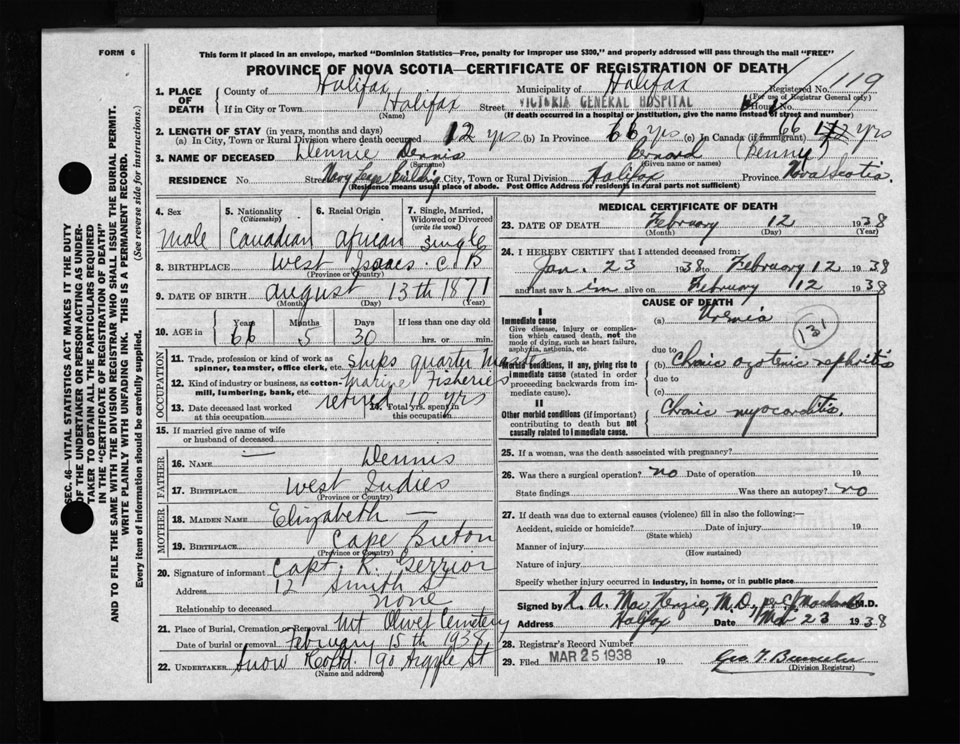 FORM 6
This form if placed in an envelope, marked "Dominion Statistics—Free, penalty for improper use $300," and properly addressed will pass through the mail "FREE"
PROVINCE OF NOVA SCOTIA—CERTIFICATE OF REGISTRATION OF DEATH
SEC. 46—VITAL STATISTICS ACT MAKES IT THE DUTY
OF THE UNDERTAKER OR PERSON ACTING AS UNDER-
TAKER TO OBTAIN ALL THE PARTICULARS REQUIRED
IN THE "CERTIFICATE OF REGISTRATION OF DEATH"
AND TO FILE THE SAME WITH THE DIVISION REGISTRAR WHO SHALL ISSUE THE BURIAL PERMIT.
WRITE PLAINLY WITH UNFADING INK. THIS IS A PERMANENT RECORD.
Every item of information should be carefully supplied. (See reverse side for instructions.)
1. PLACE OF DEATH
County of Halifax Municipality of Halifax Registered No. 119
(For use of Registrar General only)
If in City or Town Halifax Street VICTORIA GENERAL HOSPITAL House No.
(Name) (If death occurred in a hospital or institution, give the name instead of street and number)
2. LENGTH OF STAY (in years, months and days)
(a) In City, Town or Rural Division where death occurred 12 yrs (b) In Province 66 yrs (c) In Canada (if immigrant) 66 yrs
3. NAME OF DECEASED Dennie Dennis Bernard (Denny)
(Surname) (Given name or names)
RESIDENCE No. Street Navy League Building City, Town or Rural Division Halifax Province Nova Scotia.
(Residence means usual place of abode. Post Office Address for residents in rural parts not sufficient)
4. Sex Male
5. Nationality (Citizenship) Canadian
6. Racial Origin African
7. Single, Married, Widowed or Divorced (write the word) Single
8. BIRTHPLACE West C.B
(Province or Country)
9. DATE OF BIRTH August 13th 1871
(Month) (Day) (Year)
10. AGE in Years 66 Months 5 Days 30 If less than one day old hrs. or min.
OCCUPATION
11. Trade, profession or kind of work as spinner, teamster, office clerk, etc. Ships quarter Master
12. Kind of industry or business, as cotton-mill, lumbering, bank, etc. Marine Fisheries
13. Date deceased last worked at this occupation retired 10 yrs 14. Total yrs. spent in this occupation
15. If married give name of wife or husband of deceased —
FATHER
16. NAME Dennis
17. BIRTHPLACE West Indies
(Province or Country)
MOTHER
18. MAIDEN NAME Elizabeth —
19. BIRTHPLACE Cape Breton
(Province or Country)
20. Signature of informant Capt. R. Gerrior
Address 12 Smith St
Relationship to deceased none
21. Place of Burial, Cremation or Removal Mt Olivet Cemetery
Date of burial or removal February 15th 1938
22. UNDERTAKER Snow & Co Ltd. 90 Argyle St
(Name and address)
MEDICAL CERTIFICATE OF DEATH
23. DATE OF DEATH February 12 1938
(Month) (Day) (Year)
24. I HEREBY CERTIFY that I attended deceased from:
Jan. 23 1938 to February 12 1938
and last saw him alive on February 12 1938
CAUSE OF DEATH
I
Immediate cause
Give disease, injury or complication which caused death, not the mode of dying, such as heart failure, asphyxia, asthenia, etc
(a) Uremia (131)
due to
Morbid conditions, if any, giving rise to immediate cause (stated in order proceeding backwards from immediate cause).
(b) nephritis
due to
(c)
II
Other morbid conditions (if important) contributing to death but not causally related to immediate cause.
Chronic myocarditis.
25. If a woman, was the death associated with pregnancy?
26. Was there a surgical operation? no Date of operation 19
State findings Was there an autopsy? no
27. If death was due to external causes (violence) fill in also the following:—
Accident, suicide or homicide? Date of injury 19
(State which)
Manner of injury
(How sustained)
Nature of injury
Specify whether injury occurred in industry, in home, or in public place
Signed by K. A. MacKenzie, M.D., per M.D.
Address Halifax Date Mar 23 1938
28. Registrar's Record Number
29. Filed MAR 25 1938 19
(Division Registrar)